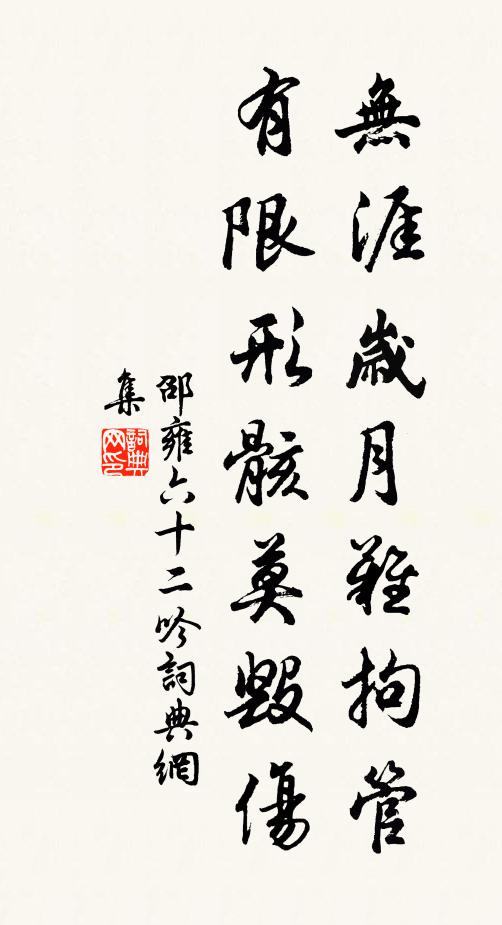 無涯歲月難拘管
有限形骸莫毀傷
邵雍六十二吟詞典網
集
詞典网印